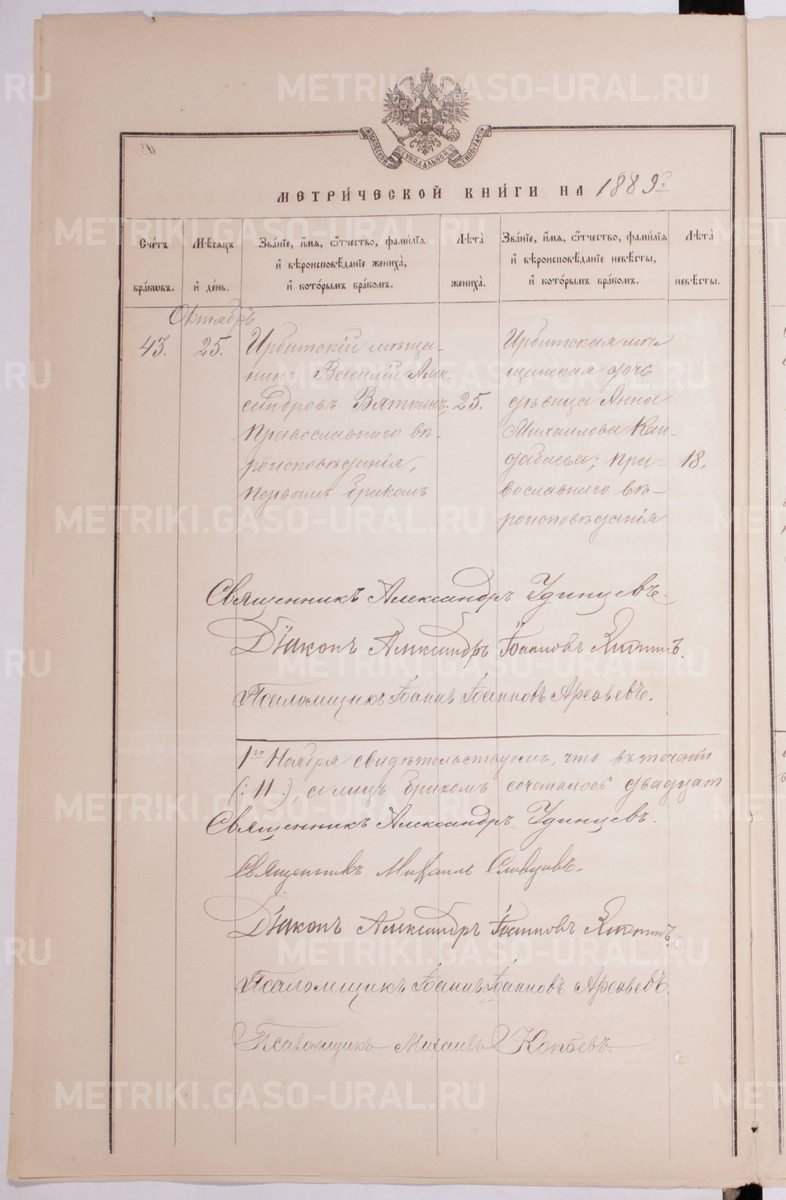 МЕТРИ́ЧЕСКОЙ КНИ́ГИ НА 1889 г.
Счётъ бра́ковъ.
Мѣ́сяцъ и̂ де́нь.
Зва́нїе, и҆́мя, ѻ҆́тчество, фами́лїя и҆ вѣроисповѣ́данїе жениха̀, и҆ кото́рымъ бра́комъ.
Лѣ́та жениха̀.
Зва́нїе, и҆́мя, ѻ҆́тчество, фами́лїя и҆ вѣроисповѣ́данїе невѣ́сты, и҆ кото́рымъ бра́комъ.
Лѣ́та невѣ́сты.
Октябрь
43.
25.
Ирбитскій мѣща-
нинъ Василій Алек-
сандровъ Вяткинъ,
православнаго вѣ-
роисповѣданія,
первымъ бракомъ
25.
Ирбитская мѣ-
щанская дочь
дѣвица Анна
Михаилова Кан-
дабаева; пра-
вославнаго вѣ-
роисповѣданія
18.
Священникъ Александръ Удинцевъ.
Дїаконъ Александръ Іоанновъ
Псаломщикъ Іоаннъ Іоанновъ Арефьевъ.
1го Ноября свидѣтельствуемъ, что въ теченіи
(: 11 :), мцъ бракомъ сочеталось двадцат
Священникъ Александръ Удинцевъ.
Священникъ Михаилъ Словцовъ.
Дїаконъ Александръ Іоанновъ
Псаломщикъ Іоаннъ Іоанновъ Арефьевъ.
Псаломщикъ Михаилъ
METRIKI.GASO-URAL.RU